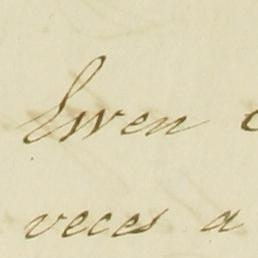 Ewen
veces a